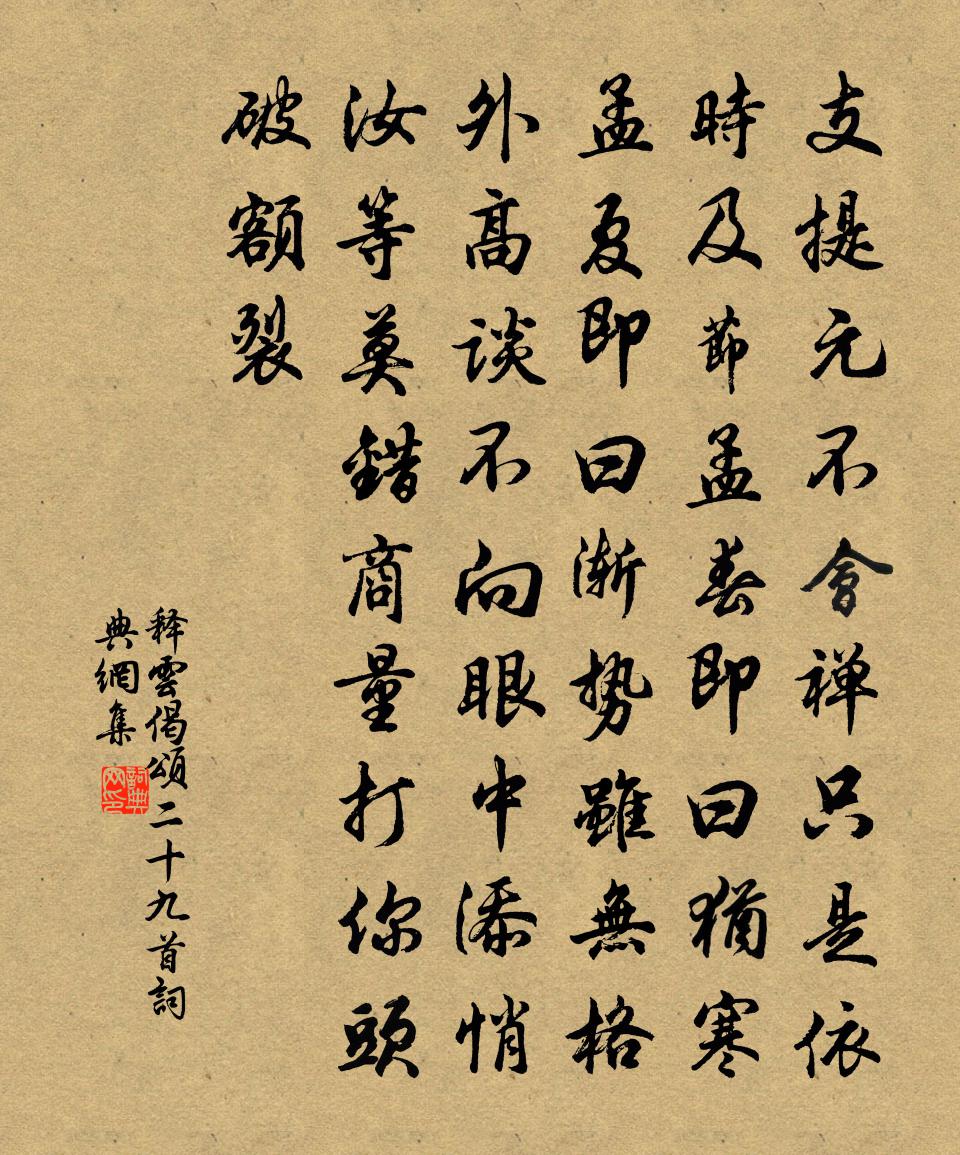 支提元不會禅只是依
時及節孟春即曰猶寒
孟夏即曰渐势雖無格
外高谈不向眼中添悄
汝等莫錯商量打你頭
破額裂
释雲偈頌二十九首詞
典網集
詞典网印